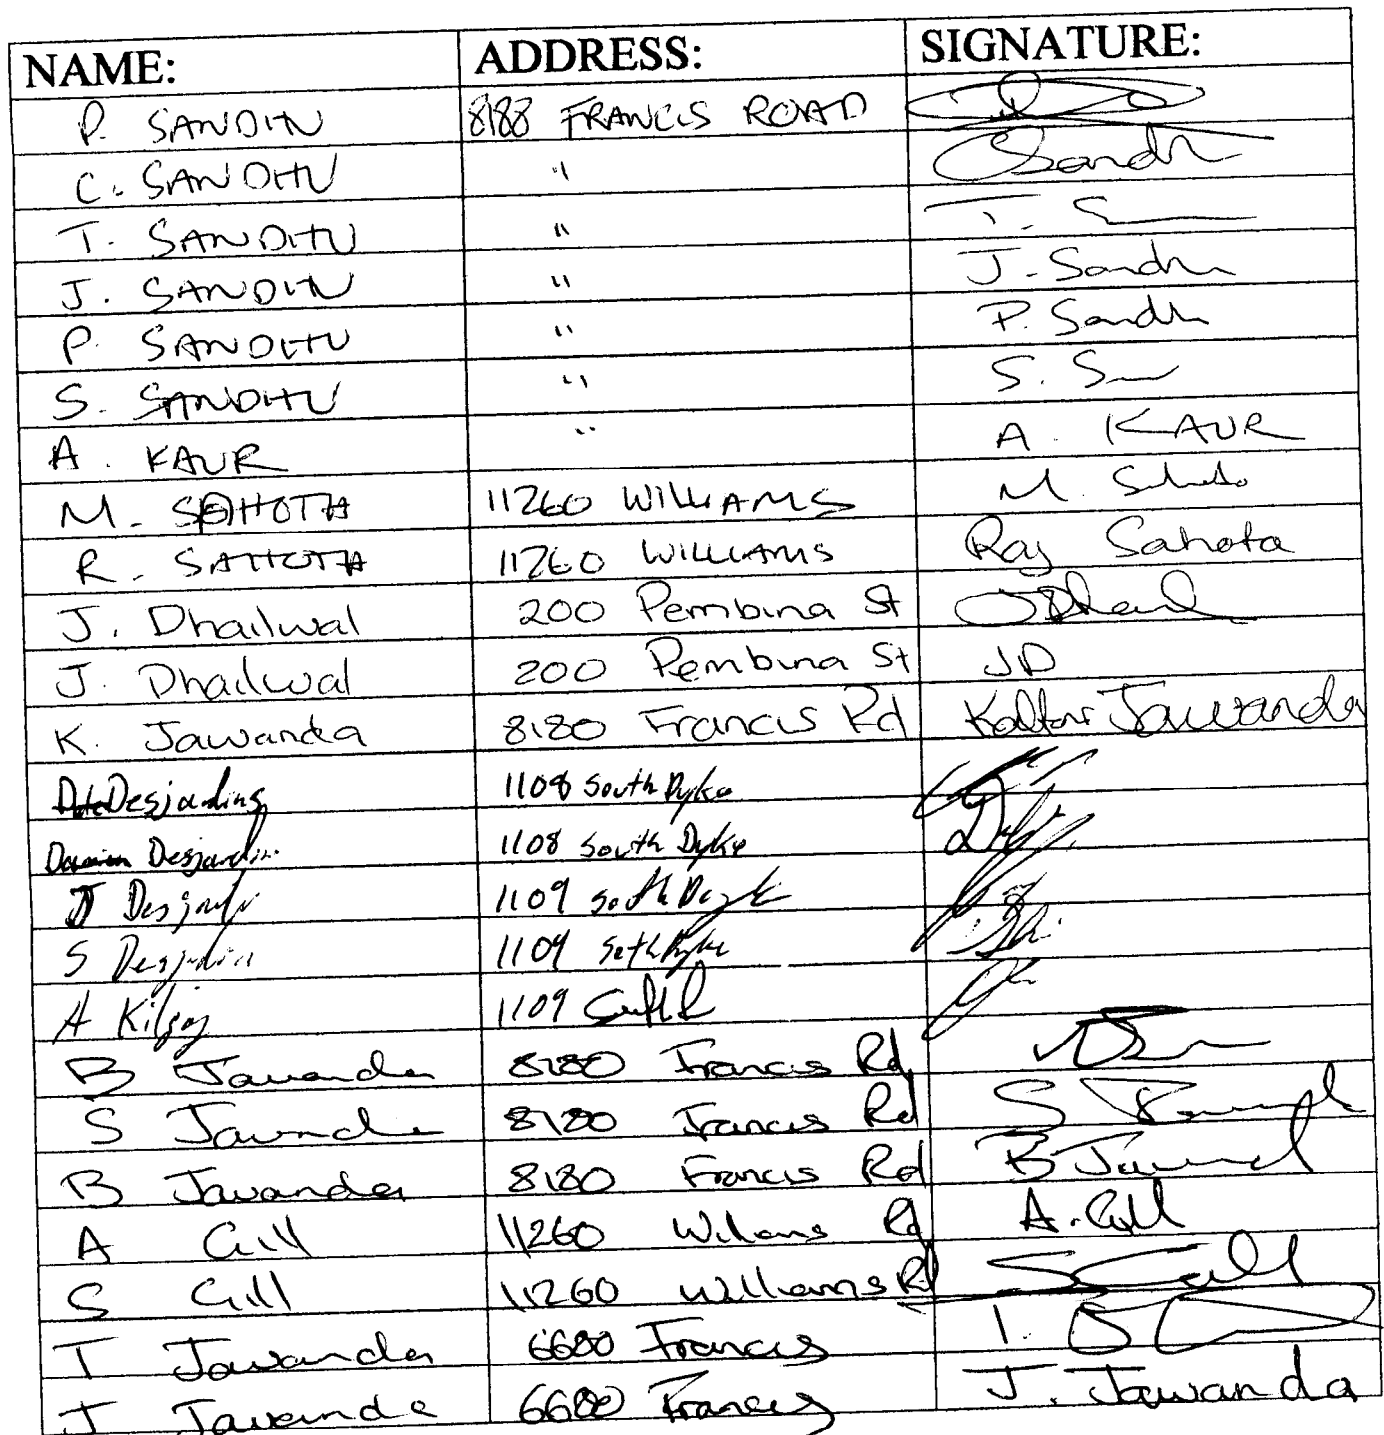 NAME: ADDRESS: SIGNATURE:
P. SANDHU 8188 FRANCIS ROAD
C. SANDHU " CSandh
T. SANDHU " T. S
J. SANDHU " J. Sandhu
P. SANDHU " P. Sandh
S. SANDHU " S. S
A. KAUR " A. KAUR
M. SAHOTA 11260 WILLIAMS M.
R. SAHOTA 11260 WILLIAMS Raj Sahota
J. Dhaliwal 200 Pembina St
J. Dhaliwal 200 Pembina St JD
K. Jawanda 8180 Francis Rd Jawanda
Desjardins 1108 South Dyke
Damien Desjardins 1108 South Dyke
D Desjardins 1109 South Dyke
S Desjardins 1109 South Dyke
A 1109
B Jawanda 8180 Francis Rd
S Jawanda 8180 Francis Rd S
B Jawanda 8180 Francis Rd B
A Gill 11260 Williams Rd A. Gill
S Gill 11260 Williams Rd S Gill
T Jawanda 6680 Francis T.
J Jawanda 6680 Francis J. Jawanda